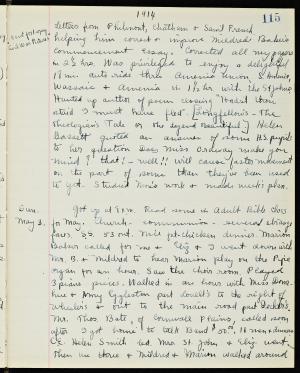 1914
115
letters from Philmont, Chatham & Saml French
helping him correct & improve Mildred Barker's
Commencement Essay. Corrected all my papers
in 2½ hrs. Was privileged to enjoy a delightful
18 mi. auto ride thro Amenia Union, S. Amenia,
Wassaic & Amenia in 1½ hr with the St Johns
Hunted up author of poem "Hadst thou
staid I must have fled" (Longfellow's - The
Theologian's Tale of The Legend Beautiful.) Helen
Bassett quoted an answer of some H.S. pupils
to her question Say Miss Ordway make you
mind? that! - well!! will cause faster movement
on the part of some than they've been used
to yet. Studied Tom's work & made week's plan.
Sun. Got up at 8 A.M. Read some in Adult Bible Class
May 3. for May. Church - communion - several
53 out. Nice pt-chicken dinner Marion
Baker called for me & I went down with
Mr. B. & Mildred to hear Marion play on the Pipe
organ for an hour. Saw the choir room Played
3 piano pieces. Walked in an hour with Miss
& Amy Eggleston past to the right of
Wheeler's & out to the main road past
Mr. Thos Bate, of Cornwall Plains, called soon
after I got home to talk Band
C.E. Helen Smith led. Mrs St. John & went
then we three & Mildred & Marion walked around